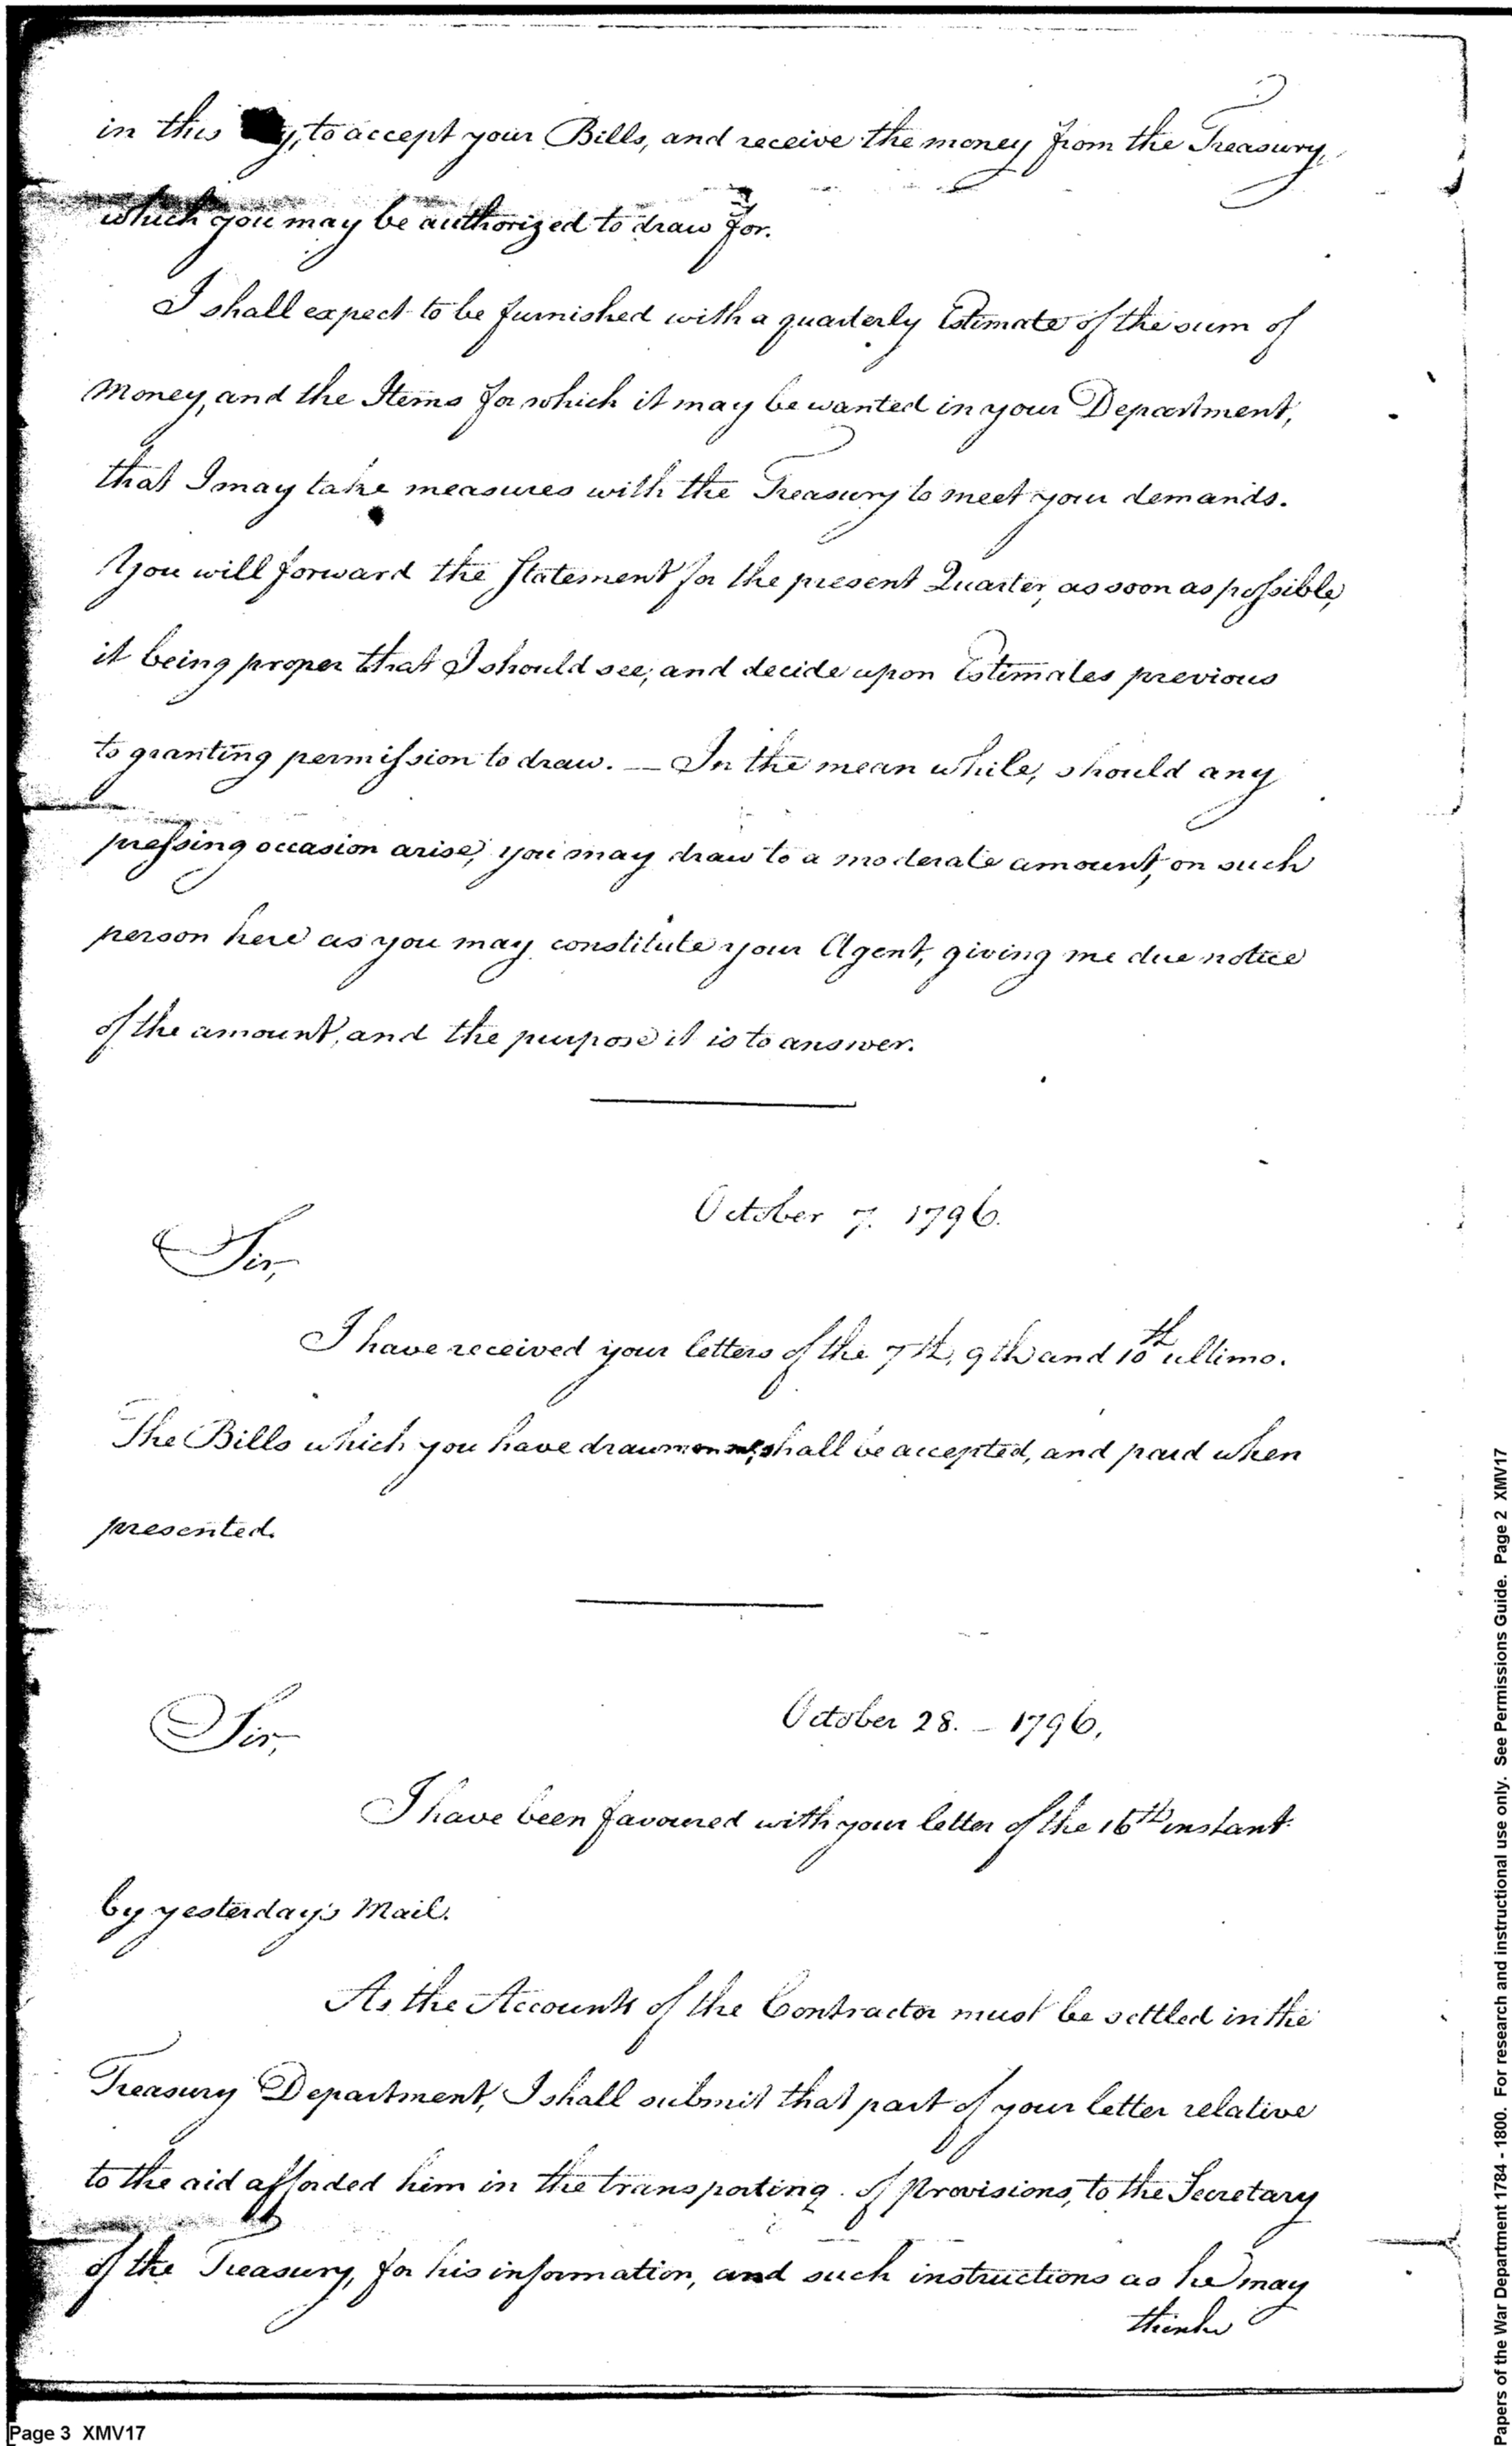 in this y, to accept your Bills, and receive the money from the Treasury,
which you may be authorized to draw for.
I shall expect to be furnished with a quarterly Estimate of the sum of
Money, and the Items for which it may be wanted in your Department,
that I may take measures with the Treasury to meet your demands.
You will forward the Statement for the present Quarter, as soon as possible,
it being proper that I should see, and decide upon Estimates previous
to granting permission to draw. — In the mean while, should any
pressing occasion arise, you may draw to a moderate amount, on such
person here as you may constitute your Agent, giving me due notice
of the amount, and the purpose it is to answer.
October 7. 1796.
Sir,
I have received your letters of the 7th, 9th and 10th ultimo.
The Bills which you have drawn on me, shall be accepted, and paid when
presented.
October 28. – 1796.
Sir,
I have been favoured with your letter of the 16th instant
by yesterday's Mail.
As the Accounts of the Contractor must be settled in the
Treasury Department, I shall submit that part of your letter relative
to the aid afforded him in the transporting of Provisions, to the Secretary
of the Treasury, for his information, and such instructions as he may
think
Page 3 XMV17
Papers of the War Department 1784 - 1800. For research and instructional use only. See Permissions Guide. Page 2 XMV17